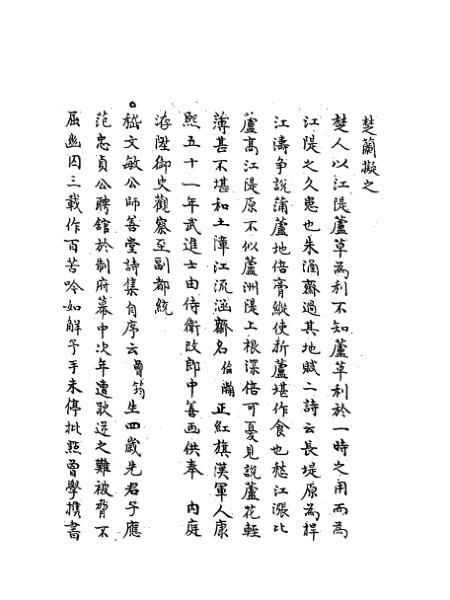 楚蘭擬之
楚人以江隄蘆草為利不知蘆草利於一時之用而為
江隄之久患也朱涵齋過其地賦二詩云長堤原為捍
江濤爭說蒲蘆地倍膏縱使折蘆堪作食也愁江漲比
蘆高江隄原不似蘆洲隄上根深倍可憂見說蘆花輕
薄甚不堪和土障江流涵齋名倫瀚正紅旗漢軍人康
熙五十一年武進士由侍衛改郎中善画供奉 內庭
洊陞御史觀察至副都統
。嵇文敏公師善堂詩集自序云曾筠生四歲先君子應
范忠貞公聘館於制府幕中次年遭耿逆之難被脅不
屈幽囚三載作百苦吟如解子手未停批點曾學攜書